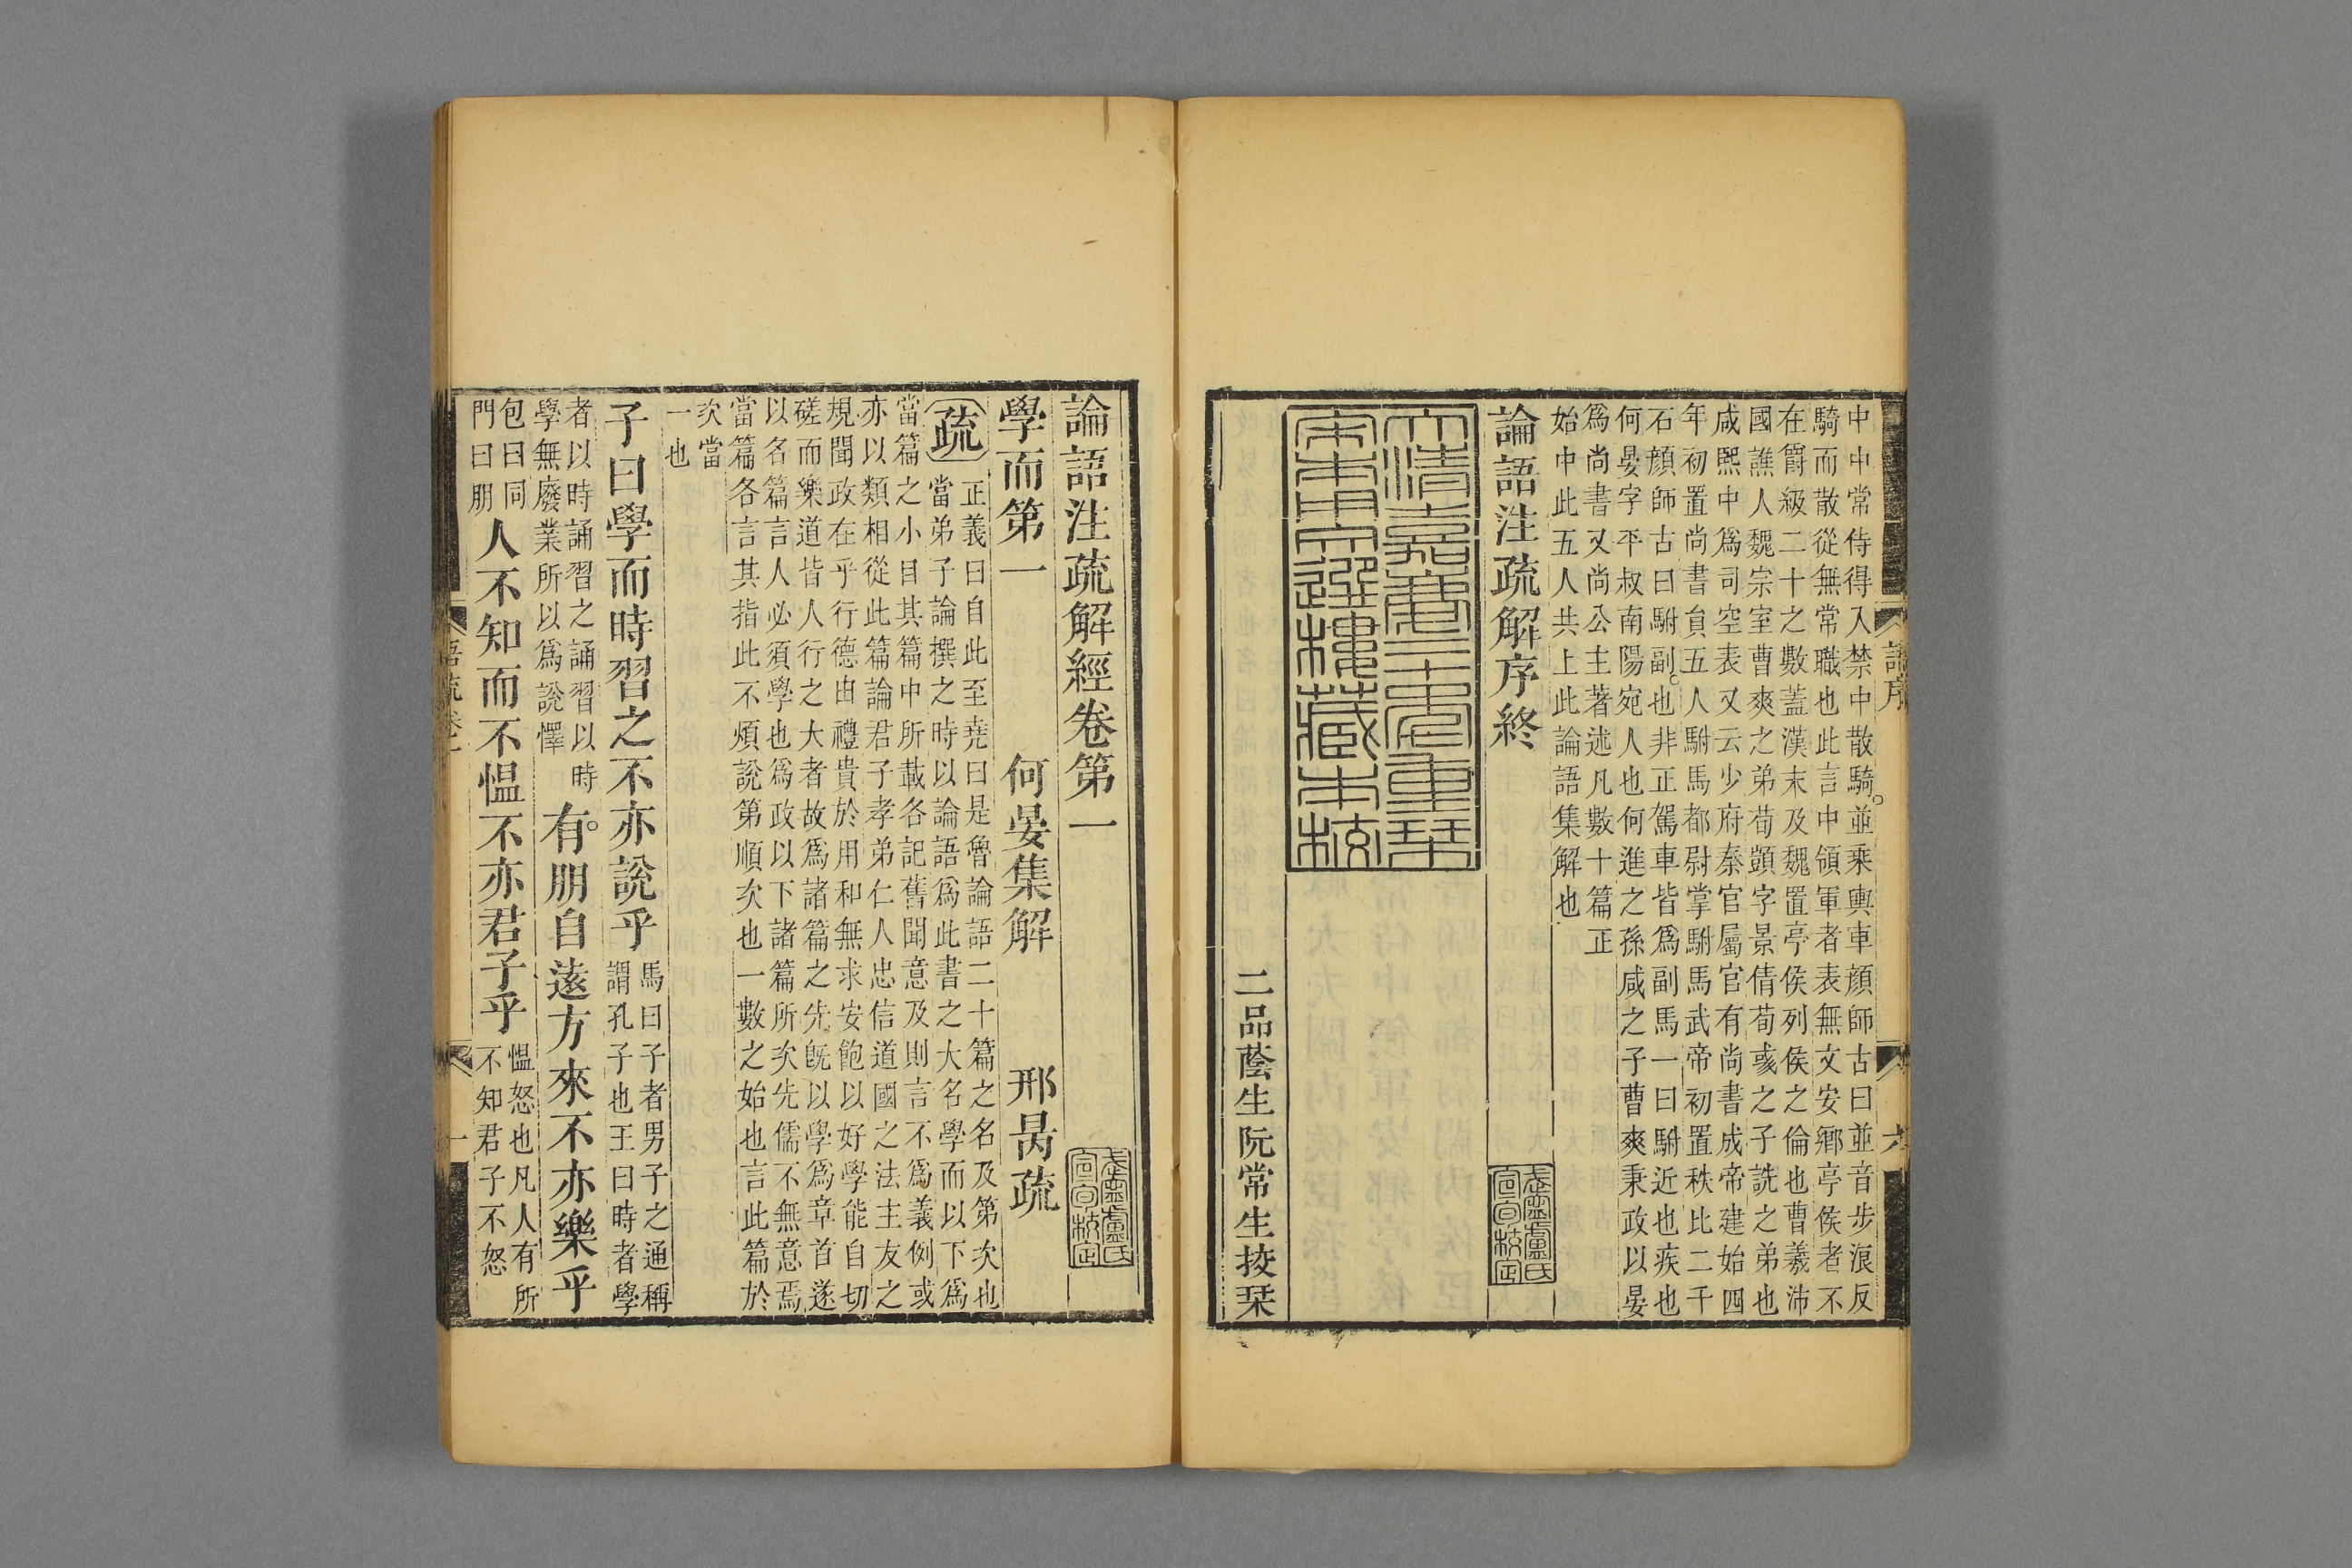 語序 六
中中常侍得入禁中散騎並乘輿車顏師古曰並音步浪反
騎而散從無常職也此言中領軍者表無文安鄉亭侯者不
在爵級二十之數蓋漢末及魏置亭侯列侯之倫也曹羲沛
國譙人魏宗室曹爽之弟荀顗字景倩荀彧之子詵之弟也
咸熙中爲司空表又云少府秦官屬官有尚書成帝建始四
年初置尚書員五人駙馬都尉掌駙馬武帝初置秩比二千
石顏師古曰駙副也非正駕車皆爲副馬一曰駙近也疾也
何晏字平叔南陽宛人也何進之孫咸之子曹爽秉政以晏
爲尚書又尚公主著述凡數十篇正
始中此五人共上此論語集解也
論語注疏解序終
武寧盧氏
宣旬校定
大清嘉慶二十年重栞
宋本用文選樓藏本校
二品蔭生阮常生挍栞
論語注疏解經卷第一
武寧盧氏
宣旬校定
學而第一 何晏集解 邢昺疏
疏
正義曰自此至堯曰是魯論語二十篇之名及第次也
當弟子論撰之時以論語爲此書之大名學而以下爲
當篇之小目其篇中所載各記舊聞意及則言不爲義例或
亦以類相從此篇論君子孝弟仁人忠信道國之法主友之
規聞政在乎行德由禮貴於用和無求安飽以好學能自切
磋而樂道皆人行之大者故爲諸篇之先旣以學爲章首遂
以名篇言人必須學也爲政以下諸篇所次先儒不無意焉
當篇各言其指此不煩說第順次也一數之始也言此篇於
次當
一也
子曰學而時習之不亦說乎
馬曰子者男子之通稱
謂孔子也王曰時者學
者以時誦習之誦習以時
學無廢業所以爲說懌
有朋自遠方來不亦樂乎
包曰同
門曰朋
人不知而不慍不亦君子乎
慍怒也凡人有所
不知君子不怒
語疏卷一 一